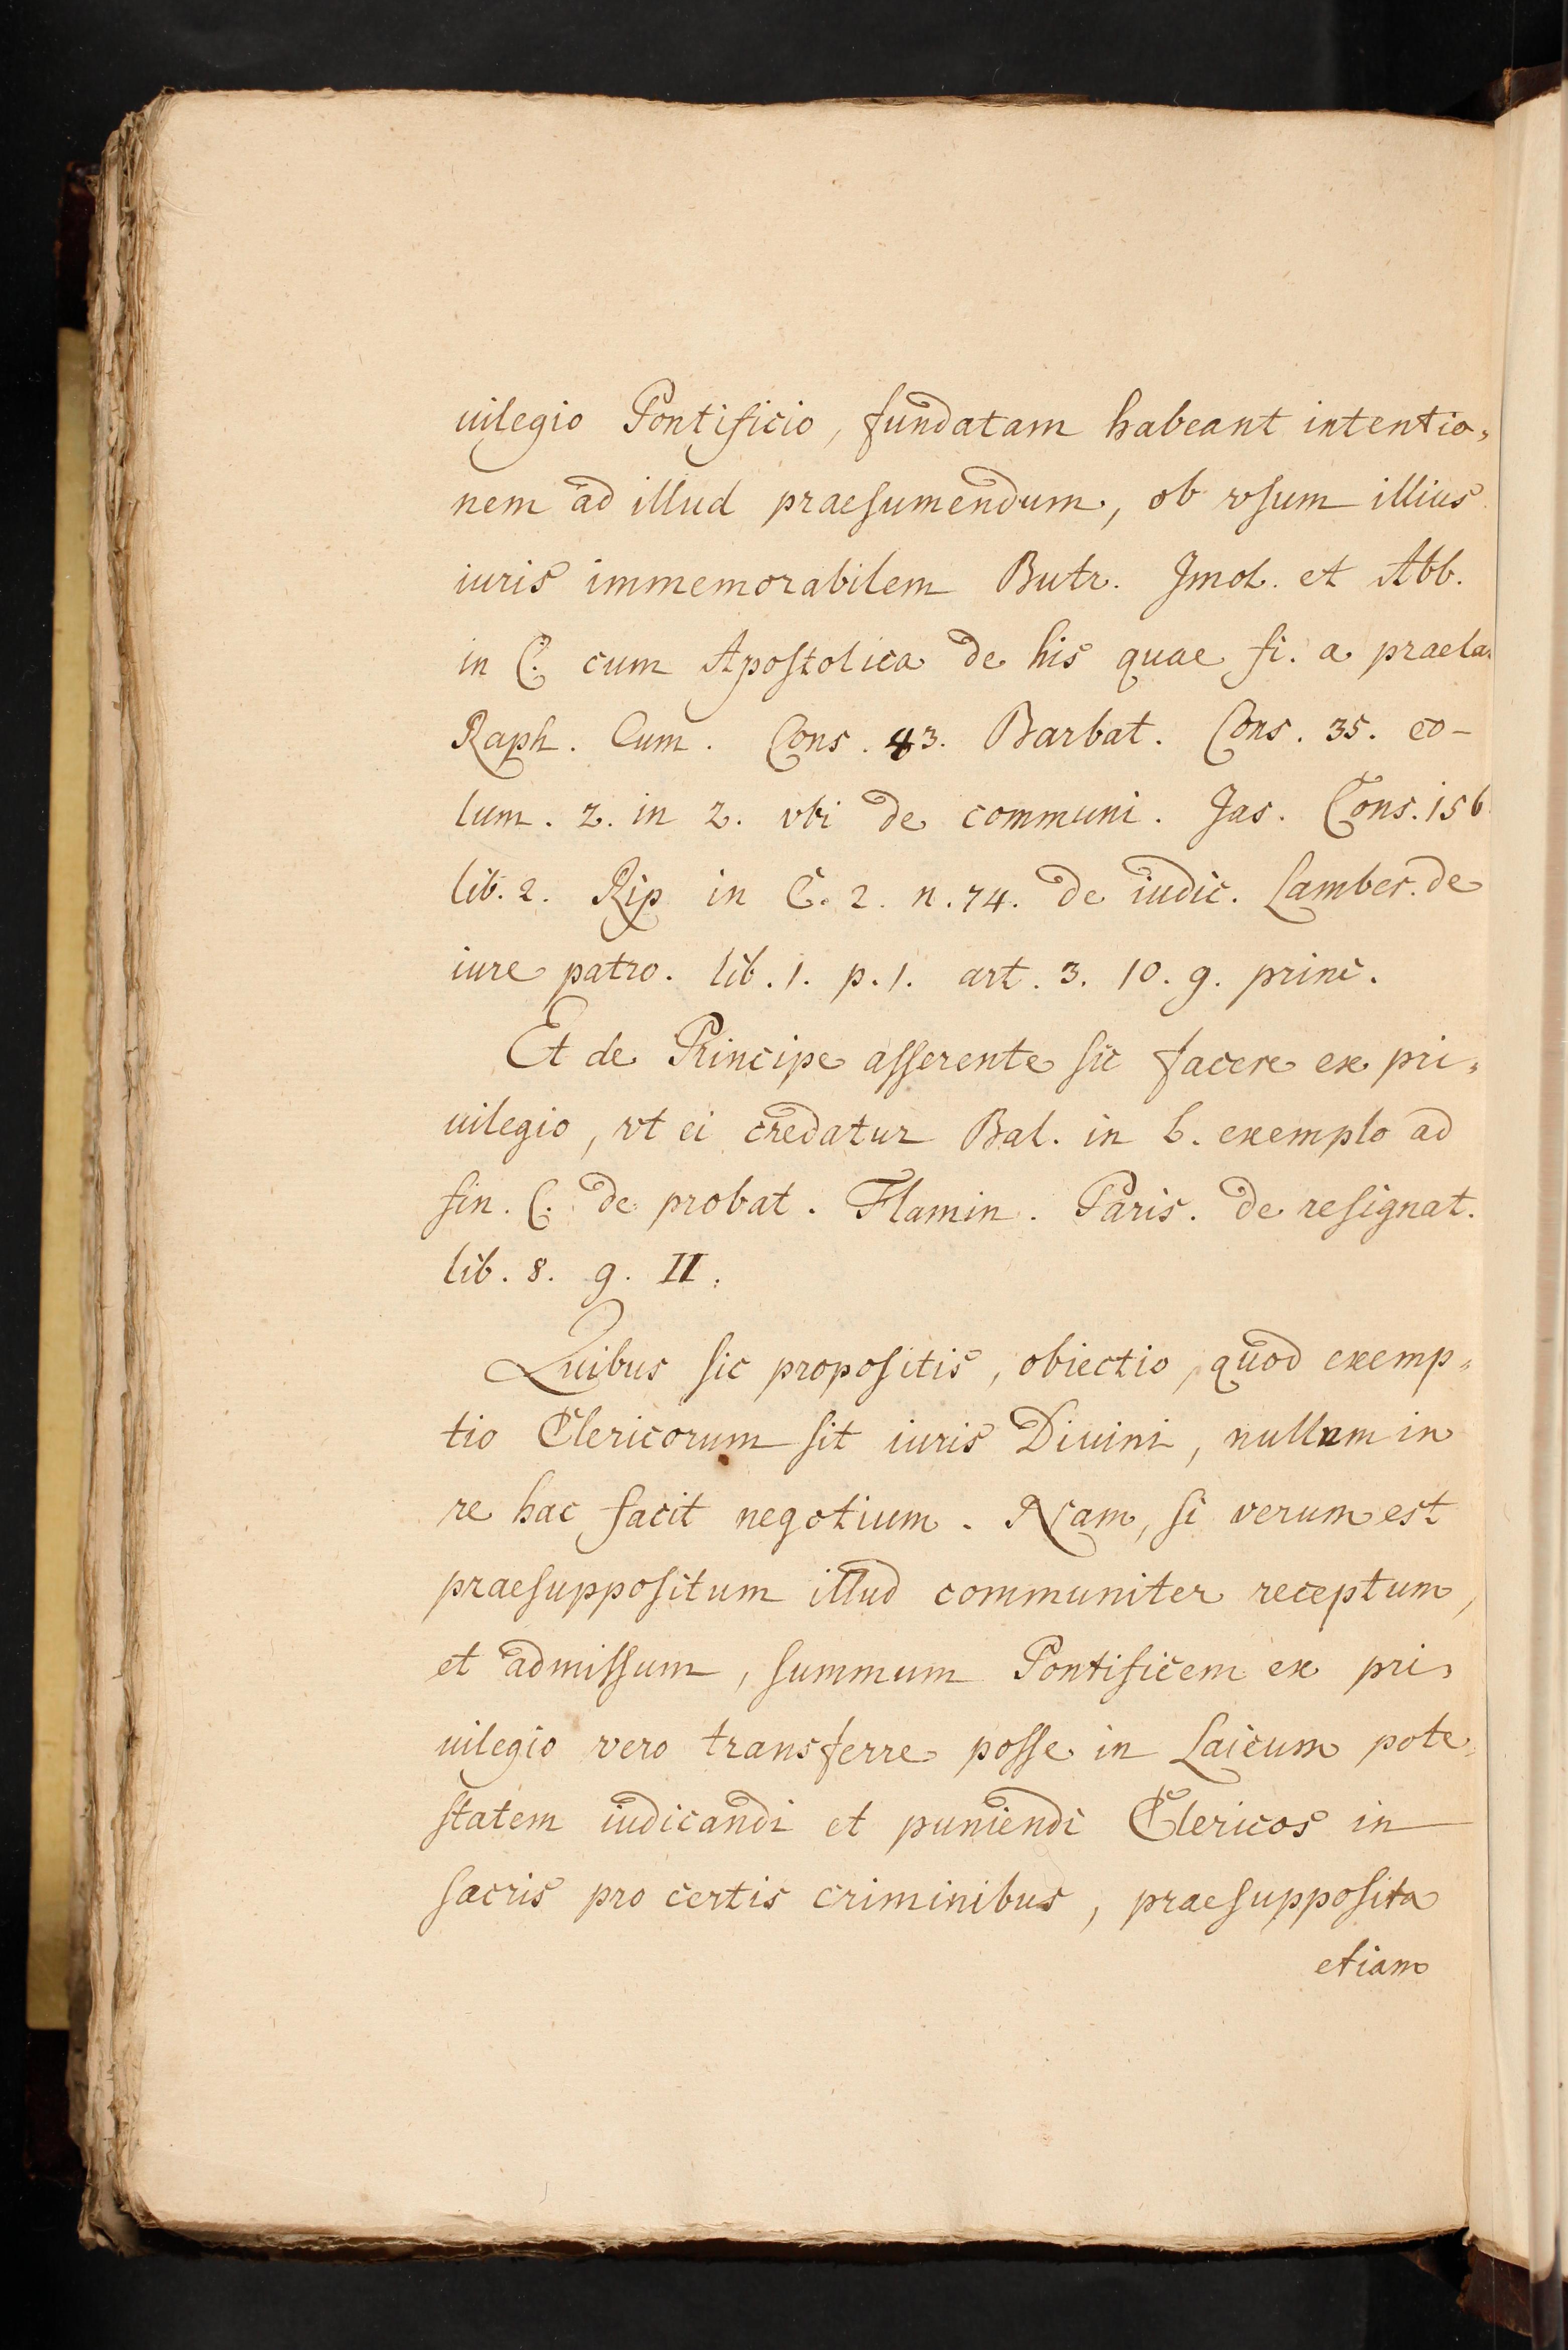 uilegio Pontificio, fundatam habeant intentio,
nem ad illud praesumendum, ob vsum illius
iuris immemorabilem Butr. Jmol. et Abb.
in C. cum Apostolica de his quae fi. a praela.
Raph. Cum. Cons. 43. Barbat. Cons. 35. co-
lum. 2. in 2. vbi de communi. Jas. Cons. 156
lib. 2. Rip in C. 2. n. 74. de iudic. Lamber. de
iure patro. lib. 1. p. 1. art. 3. 10. q. princ.
Et de Principe asserente sic facere ex pri,
uilegio, vt ei credatur Bal. in b. exemplo ad
fin. C. de probat. Flamin. Paris. de resignat.
lib. 8. q. II.
Quibus sic propositis, obiectio, quod exemp,
tio Clericorum sit iuris Diuini, nullum in
re hac facit negotium. Nam, si verum est
praesuppositum illud communiter receptum,
et admissum, summum Pontificem ex pri,
uilegio vero transferre posse in Laicum pote,
statem iudicandi et puniendi Clericos in
sacris pro certis criminibus, praesupposita
etiam